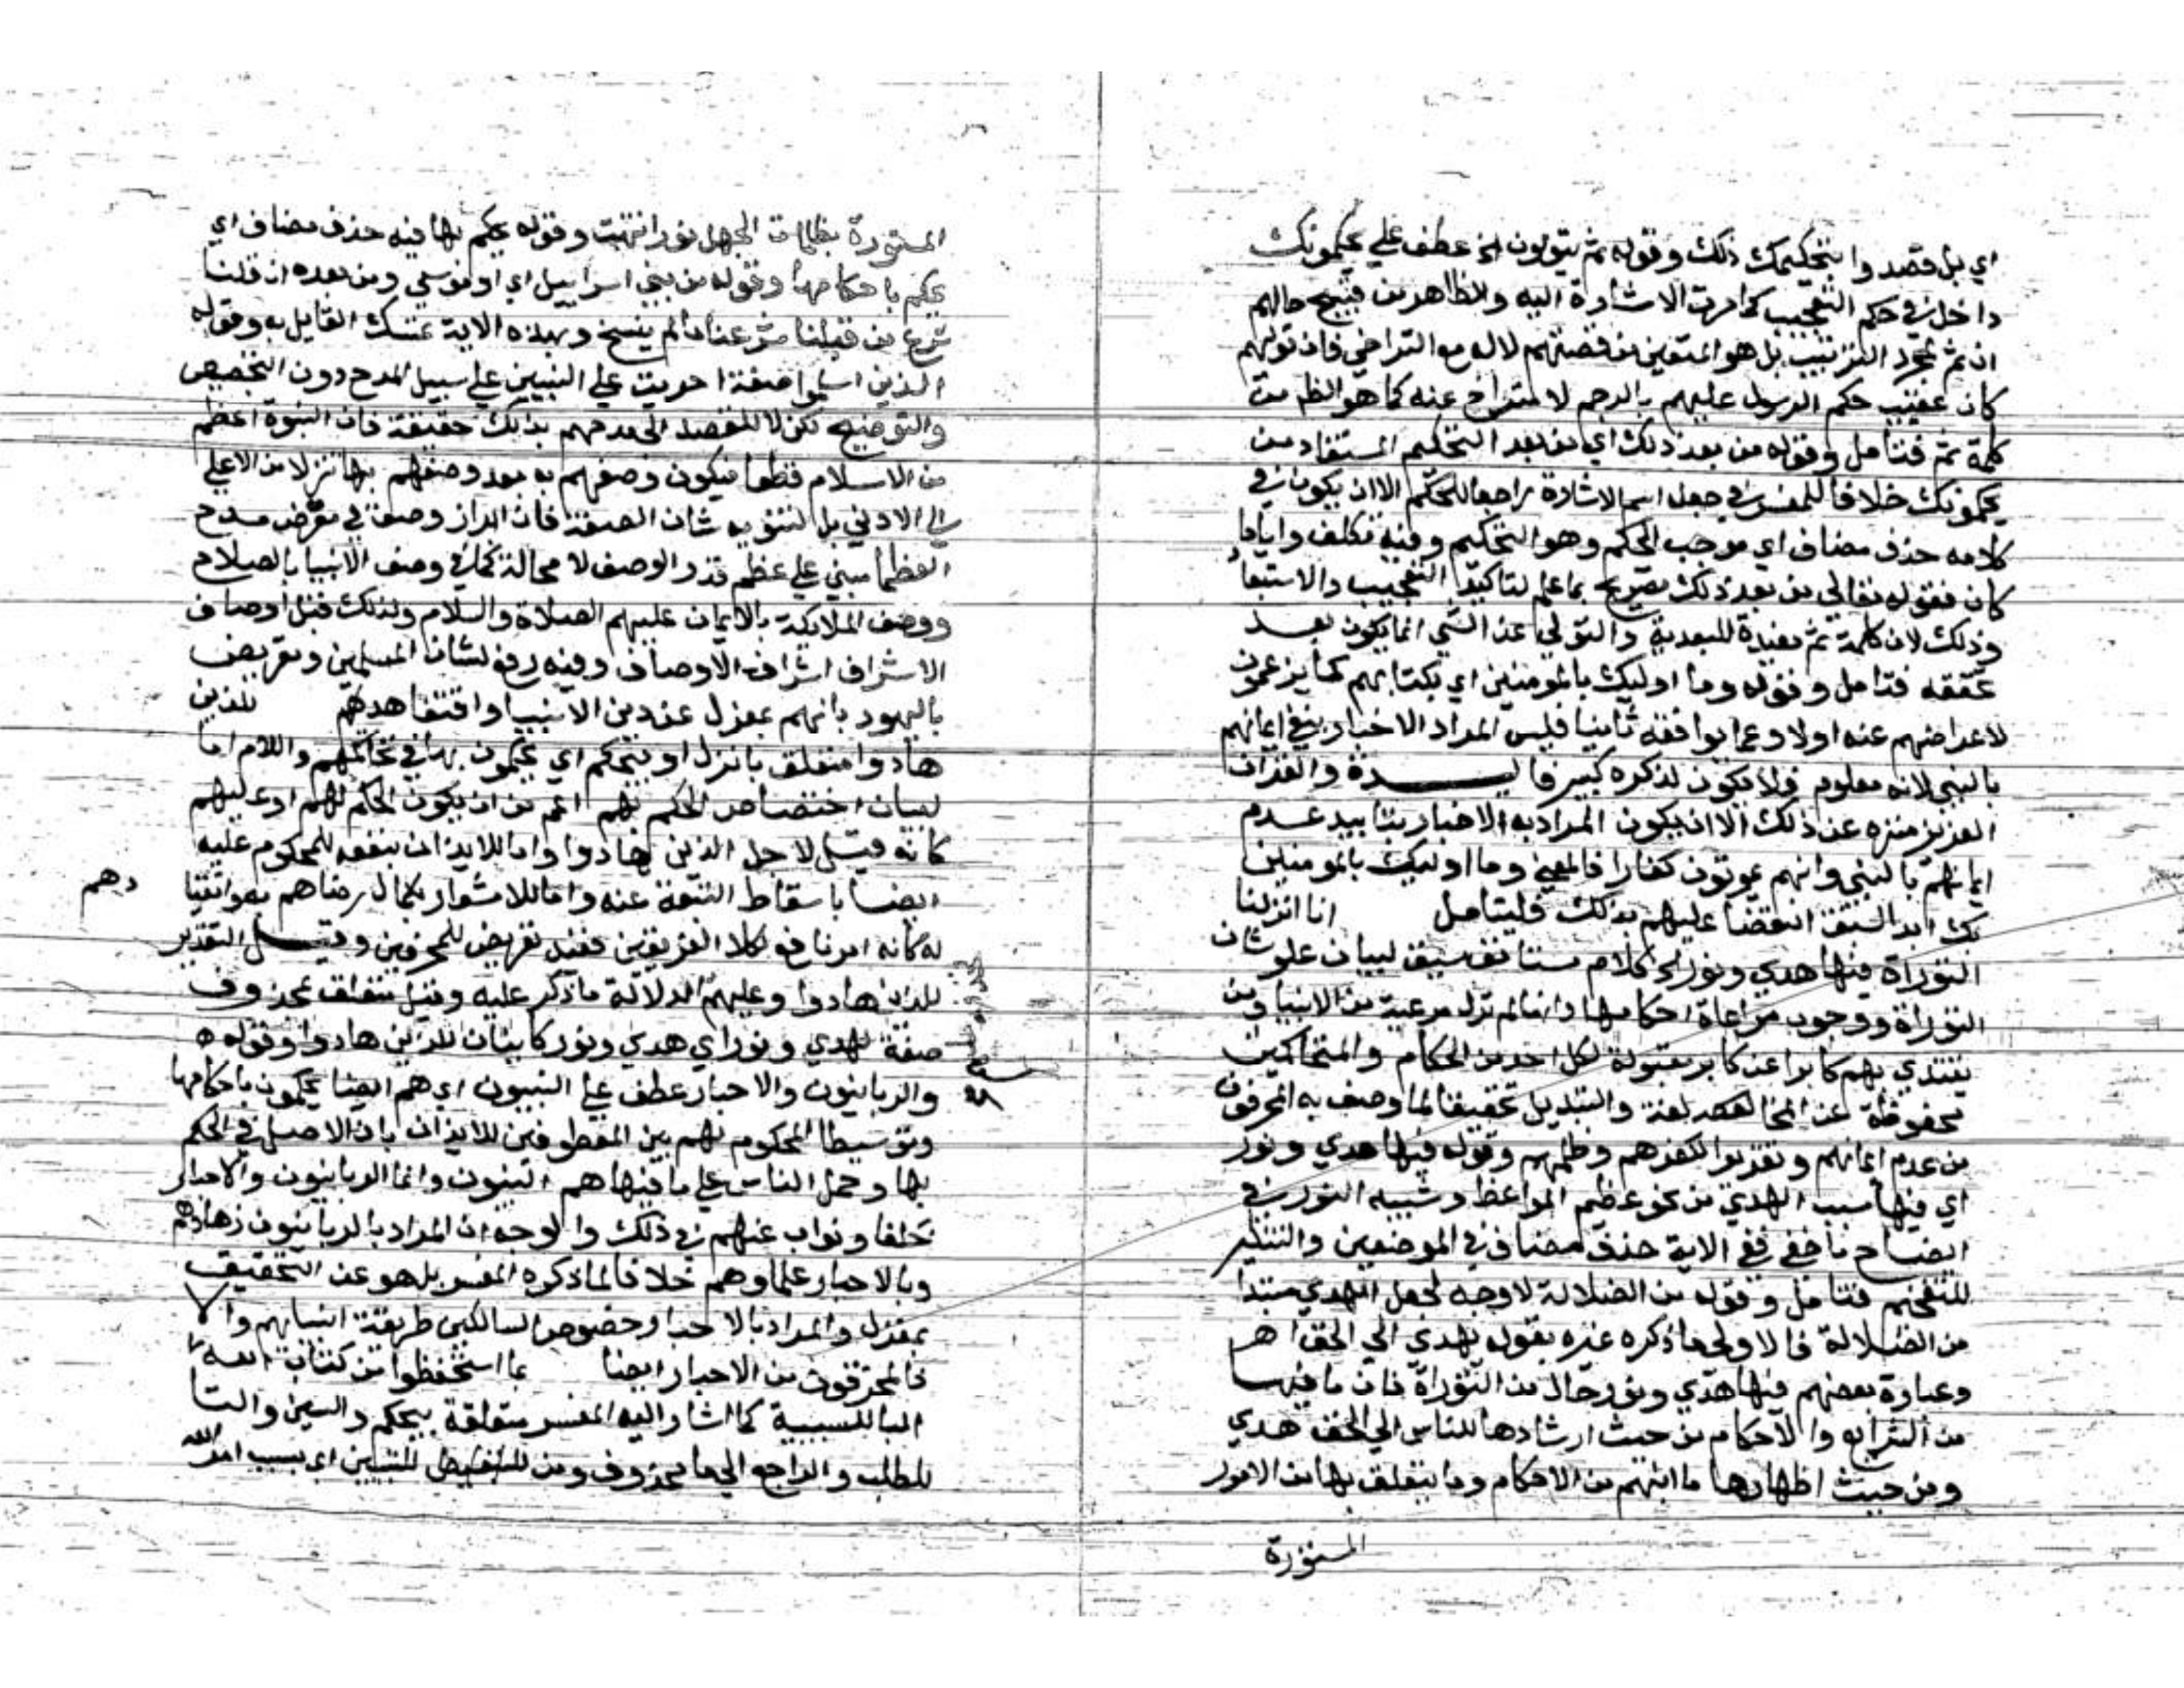 اي بل قصدوا بتحكيمك ذلك وقوله ثم يتولون الخ عطف علي يحكمونك
داخل في حكم التعجيب كما مرت الاشارة اليه والظاهر من قبيح حالهم
ان ثم لمجرد الترتيب بل هو المتعين من قصتهم لاله مع التراخي فان توليهم
كان عقيب حكم الرسول عليهم بالرجم لا متراخ عنه كما هو الظ من
كلمة ثم فتامل وقوله من بعد ذلك اي من بعد التحكيم المستفاد من
يحكمونك خلافا للمفسر في جعل اسم الاشارة راجعا للحكم الا ان يكون في
كلامه حذف مضاف اي موجب الحكم وهو التحكيم وفيه تكلف وايا ما
كان فقوله تعالي من بعد ذلك تصريح بما علم لتاكيد التعجيب والاستبعا
وذلك لان كلمة ثم مفيدة للبعدية والتولي عن الشي انما يكون بعد
تحققه فتامل وقوله وما اوليك بالمومنين اي بكتابهم كما يزعمون
لاعراضهم عنه اولا وعما يوافقه ثانيا فليس المراد الاخبار بنفي ايمانهم
بالنبي لانه معلوم فلا يكون لذكره كبير فايدة والقران
العزيز منزه عن ذلك الا ان يكون المراد به الاخبار بتابيد عدم
ايمانهم بالنبي وانهم يموتون كفارا فالمعني وما اوليك بالمومنين
بك ابدا لسبق القضا عليهم بذلك فليتامل انا انزلنا
التوراة فيها هدي ونور الخ كلام مستانف سيق لبيان علو شان
التوراة ووجوب مراعاة احكامها وانها لم تزل مرعية من الانبيا ومن
يقتدي بهم كابرا عن كابر مقبولة لكل احد من الحكام والمتحاكمين
محفوظة عن المخالفة والتبديل تحقيقا لما وصف به المحرفون
من عدم ايمانهم وتقريرا لكفرهم وظلمهم وقوله فيها هدي ونور
اي فيها سبب الهدي من نحو عظيم المواعظ وشبيه النور في
ايضاح ما خفي ففي الاية حذف مضاف في الموضعين والتنكير
للتفخيم فتامل وقوله من الضلالة لا وجه لجعل الهدي مبتدا
من الضلالة فالاولي ما ذكره غيره بقوله يهدي الي الحق اهـ
وعبارة بعضهم فيها هدي ونور حال من التوراة فان ما فيها
من الشرايع والاحكام من حيث ارشادها للناس الي الحق هدي
ومن حيث اظهارها ما انبهم من الاحكام وما يتعلق بها من الامور
المستورة
المستورة بظلمات الجهل نور انتهت وقوله يحكم بها فيه حذف مضاف اي
يحكم باحكامها وقوله من بني اسراييل اي او موسي ومن بعده ان قلنا
شرع من قبلنا شرع لنا ما لم ينسخ وبهذه الاية تمسك القايل به وقوله
الذين اسلموا صفة اجريت علي النبيين علي سبيل المدح دون التخصيص
والتوضيح لكن لا للقصد الي مدحهم بذلك حقيقة فان النبوة اعظم
من الاسلام قطعا فيكون وصفهم به بعد وصفهم بها تنزلا من الاعلي
الي الادني بل لتنويه شان الصفة فان ابراز وصف في معرض مدح
العظما مبني علي عظم قدر الوصف لا محالة كما في وصف الانبيا بالصلاح
ووصف الملايكة بالايمان عليهم الصلاة والسلام ولذلك قيل اوصاف
الاشراف اشراف الاوصاف وفيه رفع لشان المسلمين وتعريض
باليهود بانهم بمعزل عن دين الانبيا واقتفا هديهم للذين
هادوا متعلق بانزل او بيحكم اي يحكمون بها في تحاكمهم واللام اما
لبيان اختصاص الحكم بهم اعم من ان يكون الحكم لهم او عليهم
كانه قيل لاجل الذين هادوا واما للايذان بنفعه للمحكوم عليه
ايضا باسقاط التبعة عنه واما للاشعار بكمال رضاهم به وانقيا
دهم
له كانه امر نافع لكلا الفريقين ففيه تعريض للمحرفين وقيل التقدير
للذين هادوا وعليهم الدلالة ما ذكر عليه وقيل متعلق بمحذوف
صفة لهدي ونور اي هدي ونور كاينان للذين هادوا وقوله
والربانيون والاحبار عطف علي النبيون اي هم ايضا يحكمون باحكامها
وتوسيط المحكوم لهم بين المعطوفين للايذان بان الاصل في الحكم
بها وحمل الناس علي ما فيها هم النبيون وانما الربانيون والاحبار
خلفا ونواب عنهم في ذلك والوجه ان المراد بالربانيون زهادهم
وبالاحبار علماوهم خلافا لما ذكره المفسر بل هو عن التحقيق
بمعزل والمراد بالاحبار خصوص السالكين طريقة انبيايهم والا
فالمحرفون من الاحبار ايضا بما استحفظوا من كتاب الله
البا للسببية كما اشار اليه المفسر متعلقة بيحكم والسين والتا
للطلب والراجع الي ما محذوف ومن للتبيين اي بسبب امر الله